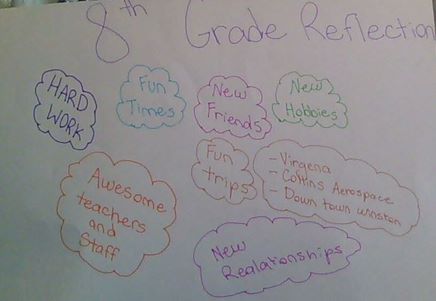 8th Grade Reflection
HARD
WORK
Fun
Times
New
Friends
New
Hobbies
Awesome
teachers
and
Staff
Fun
trips
- Virgena
- Collins Aerospace
- Down town winston
New
Realaronships